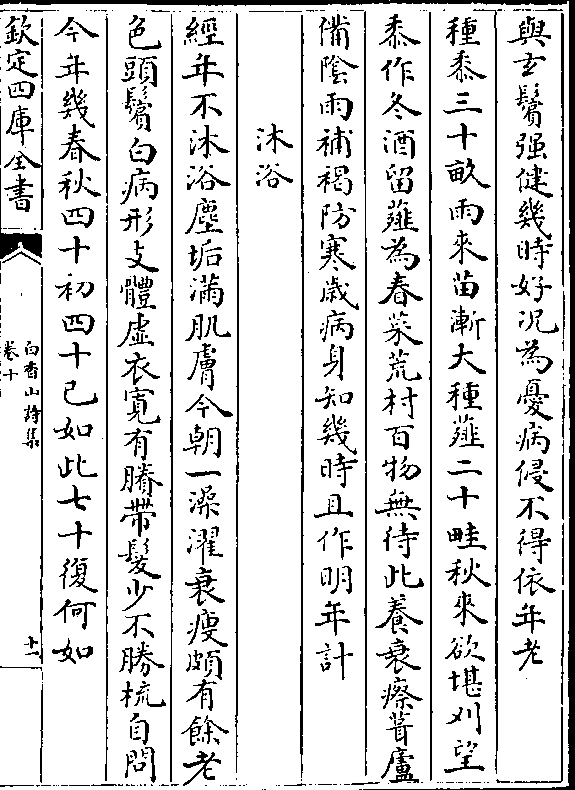 與玄鬢强健幾時好况為憂病侵不得依年老
種黍三十畝雨來苗漸大種薤二十畦秋來欲堪刈望
黍作冬酒留薤為春菜荒村百物無待此養衰瘵葺廬
備陰雨補褐防寒歲病身知幾時且作明年計
沐浴
經年不沐浴塵垢滿肌膚今朝一澡濯衰瘦頗有餘老
色頭鬢白病形支體虛衣寬有賸帶髮少不勝梳自問
今年幾春秋四十初四十已如此七十復何如
欽定四庫全書
白香山詩集
卷十
十一